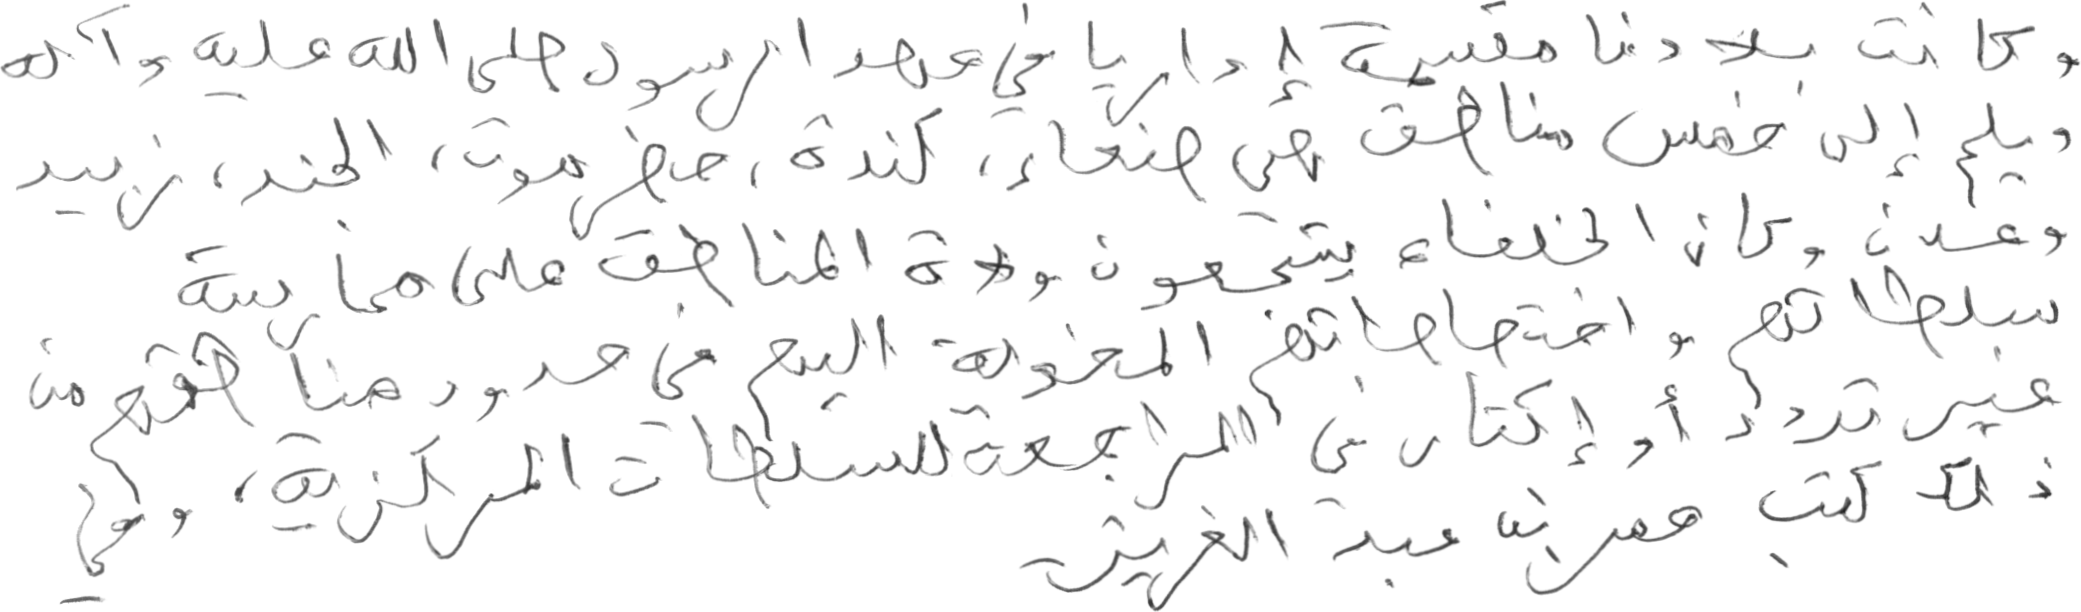 وكانت بلادنا مقسمة إداريا في عهد الرسول صلى الله عليه وآله
وسلم إلى خمس مناطق هي صنعاء، كندة، حضرموت، الجند، زبيد
وعدن وكان الخلفاء يشجعون ولاة المناطق على ممارسة
سلطاتهم واختصاصاتهم المخولة اليهم في حدود مناطقهم من
غير تردد أو إكثار في المراجعة للسلطات المركزية، وفي
ذلك كتب عمر بن عبد العزيز